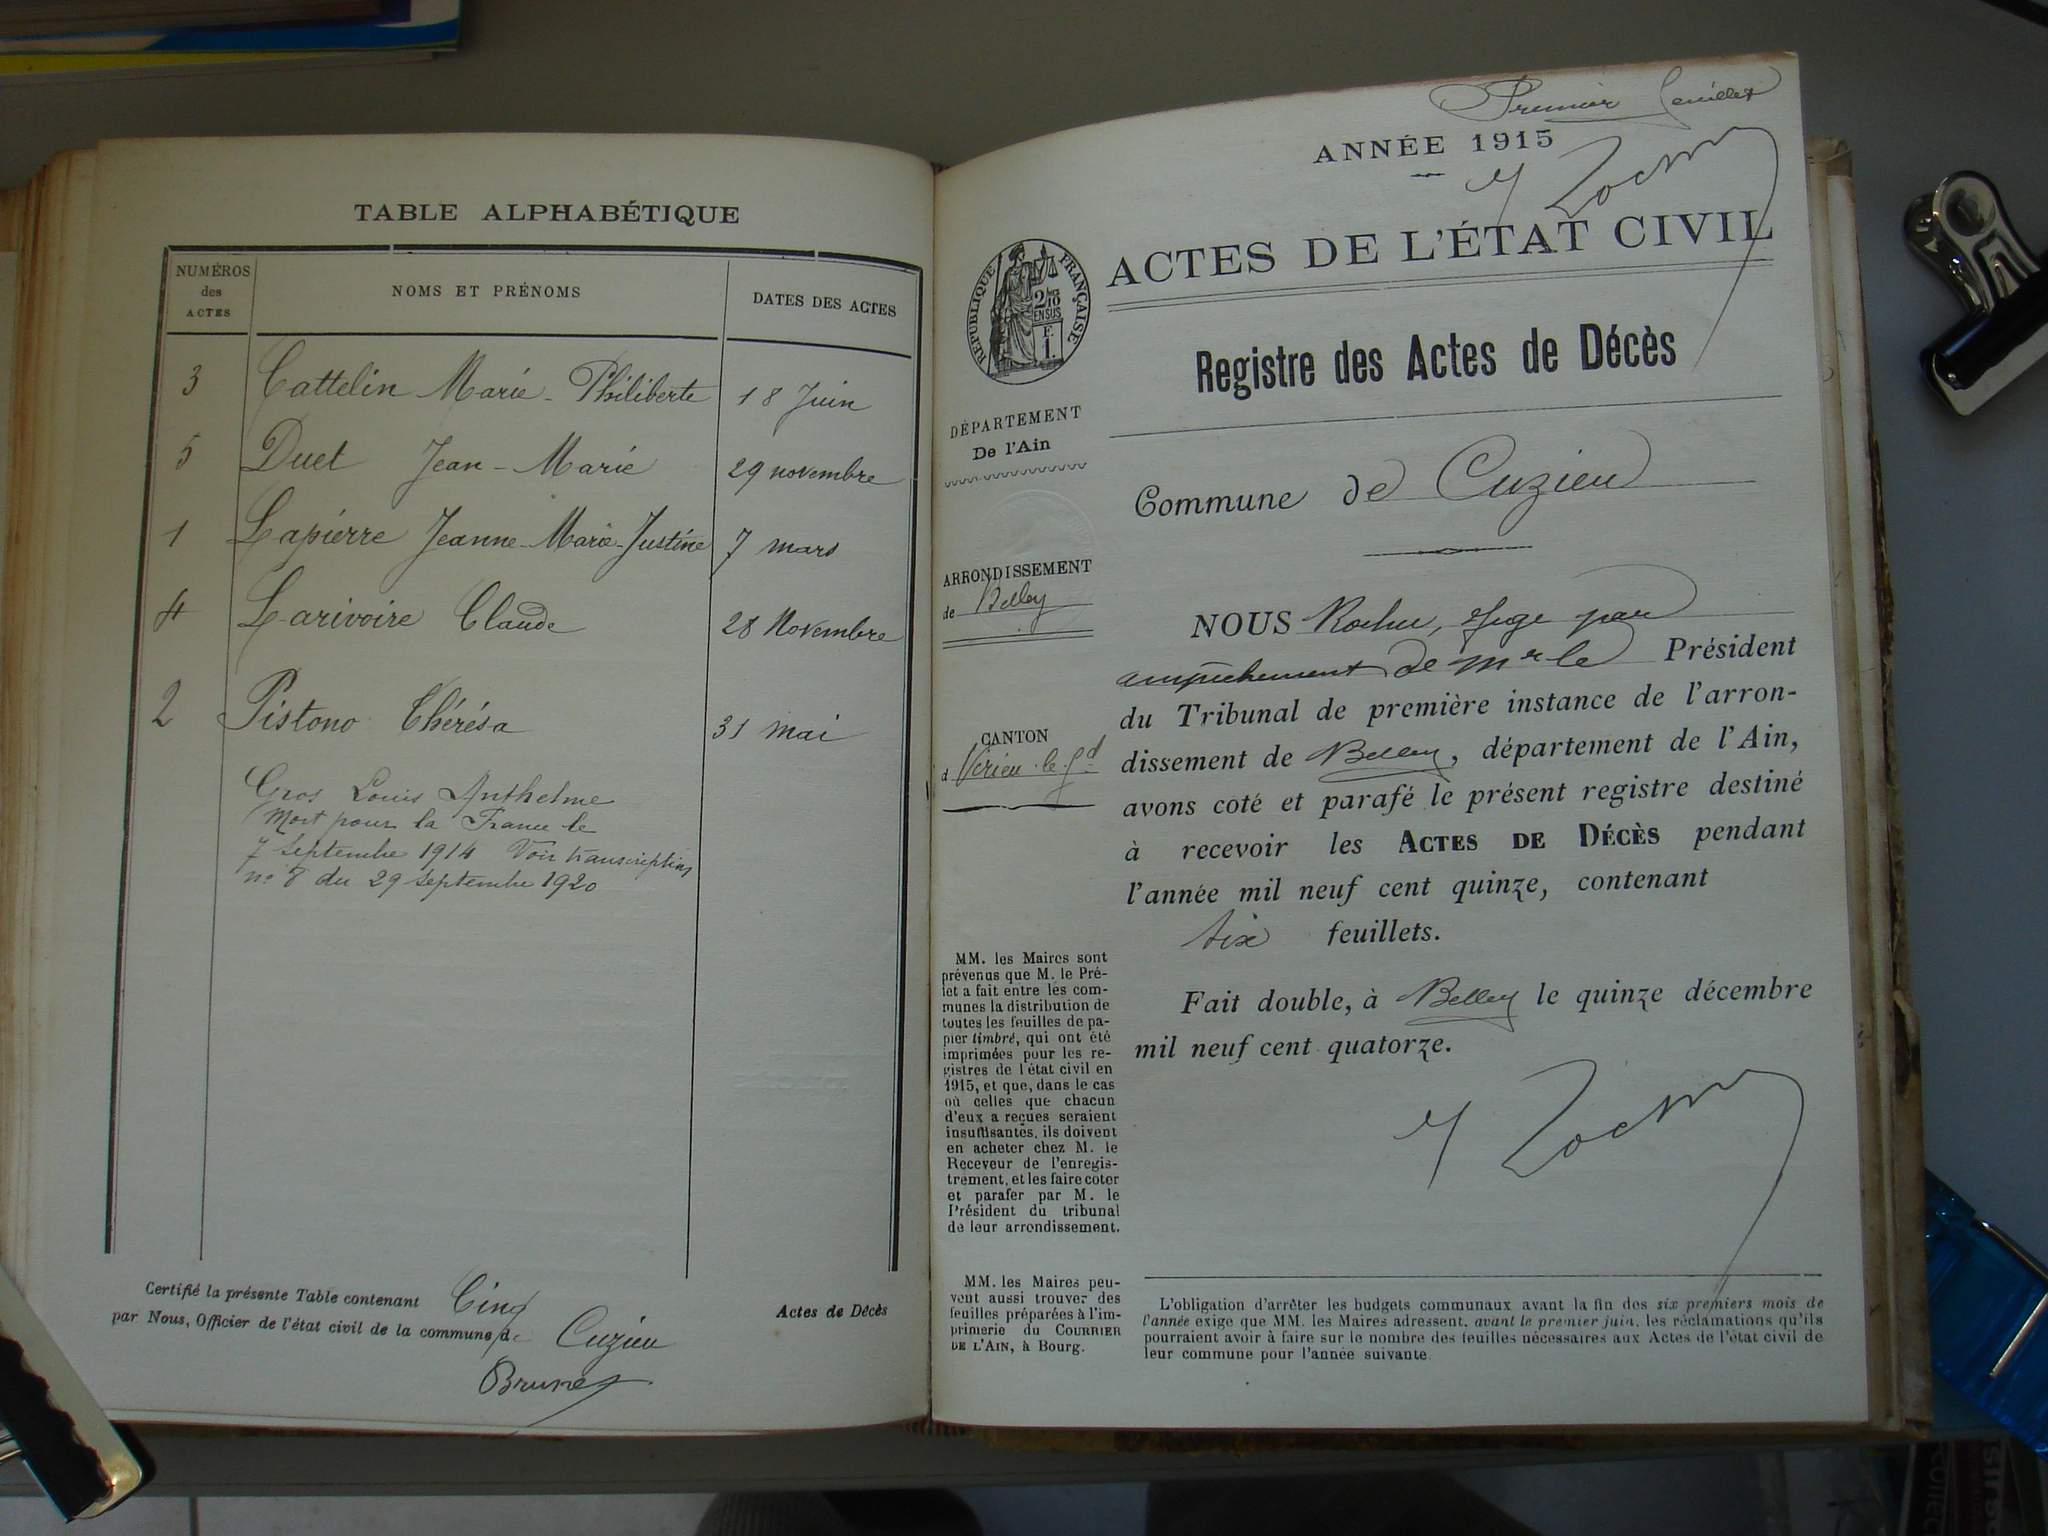 TABLE ALPHABÉTIQUE
NUMÉROS des ACTES
NOMS ET PRÉNOMS
DATES DES ACTES
3 Cattelin Marie-Philiberte 18 Juin
5 Duet Jean-Marie 29 novembre
1 Lapierre Jeanne-Marie-Justine 7 mars
4 Larivoire Claude 28 Novembre
2 Pistono Thérésa 31 mai
Gros Louis Anthelme
Mort pour la France le
7 Septembre 1914 Voir transcription
n° 8 du 29 septembre 1920
Certifié la présente Table contenant Cinq Actes de Décès
par Nous, Officier de l'état civil de la commune de Cuzieu
Brunet
Premier feuillet
ANNÉE 1915
ACTES DE L'ÉTAT CIVIL
RÉPUBLIQUE FRANÇAISE
2/10 EN SUS
F.
1.
Registre des Actes de Décès
DÉPARTEMENT
De l'Ain
Commune de Cuzieu
ARRONDISSEMENT
de Belley
CANTON
d Virieu-le-Gd
NOUS juge par
empêchement de Mr le Président
du Tribunal de première instance de l'arron-
dissement de Belley, département de l'Ain,
avons coté et parafé le présent registre destiné
à recevoir les ACTES DE DÉCÈS pendant
l'année mil neuf cent quinze, contenant
six feuillets.
Fait double, à Belley le quinze décembre
mil neuf cent quatorze.
MM. les Maires sont
prévenus que M. le Pré-
fet a fait entre les com-
munes la distribution de
toutes les feuilles de pa-
pier timbré, qui ont été
imprimées pour les re-
gistres de l'état civil en
1915, et que, dans le cas
où celles que chacun
d'eux a reçues seraient
insuffisantes, ils doivent
en acheter chez M. le
Receveur de l'enregis-
trement, et les faire coter
et parafer par M. le
Président du tribunal
de leur arrondissement.
MM. les Maires peu-
vent aussi trouver des
feuilles préparées à l'im-
primerie du COURRIER
DE L'AIN, à Bourg.
L'obligation d'arrêter les budgets communaux avant la fin des six premiers mois de
l'année exige que MM. les Maires adressent, avant le premier juin, les réclamations qu'ils
pourraient avoir à faire sur le nombre des feuilles nécessaires aux Actes de l'état civil de
leur commune pour l'année suivante.